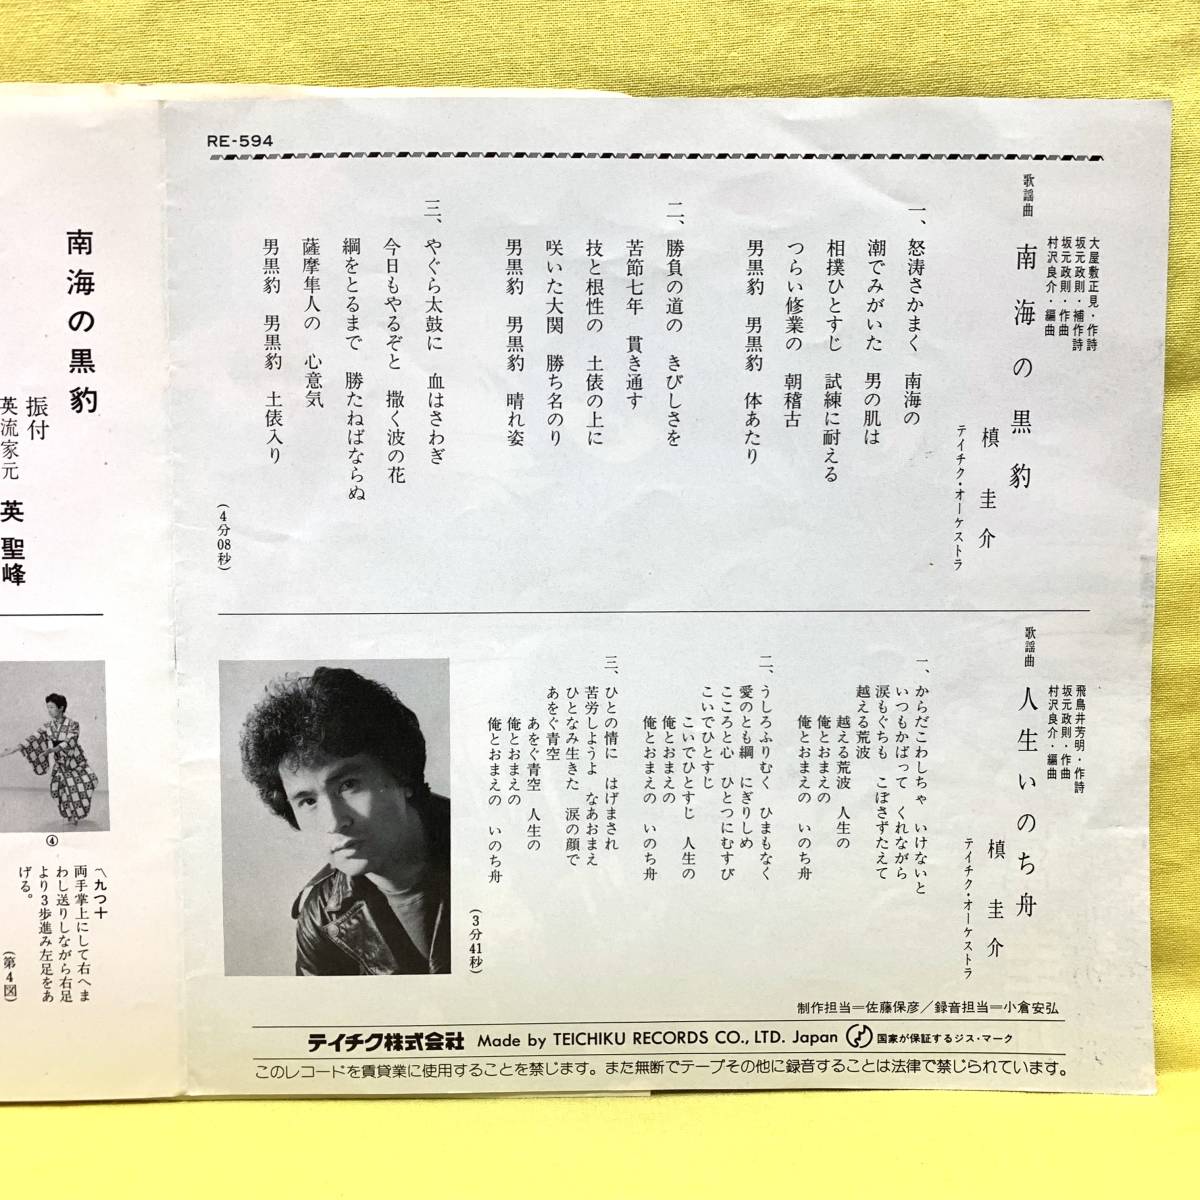 RE-594
歌謡曲
南海の黒豹
大屋敷正見・作詩
坂元政則・補作詩
坂元政則・作曲
村沢良介・編曲
槙圭介
テイチク・オーケストラ
一、怒涛さかまく 南海の
潮でみがいた 男の肌は
相撲ひとすじ 試練に耐える
つらい修業の 朝稽古
男黒豹 男黒豹 体あたり
二、勝負の道の きびしさを
苦節七年 貫き通す
技と根性の 土俵の上に
咲いた大関 勝ち名のり
男黒豹 男黒豹 晴れ姿
三、やぐら太鼓に 血はさわぎ
今日もやるぞと 撒く波の花
綱をとるまで 勝たねばならぬ
薩摩隼人の 心意気
男黒豹 男黒豹 土俵入り
(4分08秒)
歌謡曲
人生いのち舟
飛鳥井芳明・作詩
坂元政則・作曲
村沢良介・編曲
槙圭介
テイチク・オーケストラ
一、からだこわしちゃ いけないと
いつもかばって くれながら
涙もぐちも こぼさずたえて
越える荒波
越える荒波 人生の
俺とおまえの
俺とおまえの いのち舟
二、うしろふりむく ひまもなく
愛のとも綱 にぎりしめ
こころと心 ひとつにむすび
こいでひとすじ
こいでひとすじ 人生の
俺とおまえの
俺とおまえの いのち舟
三、ひとの情に はげまされ
苦労しようよ なあおまえ
ひとなみ生きた 涙の顔で
あをぐ青空
あをぐ青空 人生の
俺とおまえの
俺とおまえの いのち舟
(3分41秒)
制作担当＝佐藤保彦／録音担当＝小倉安弘
テイチク株式会社 Made by TEICHIKU RECORDS CO., LTD. Japan 国家が保証するジス・マーク
このレコードを賃貸業に使用することを禁じます。また無断でテープその他に録音することは法律で禁じられています。
南海の黒豹
振付
英流家元 英聖峰
④
九つ十
両手掌上にして右へま
わし送りしながら右足
より3歩進み左足をあ
げる。
(第4図)